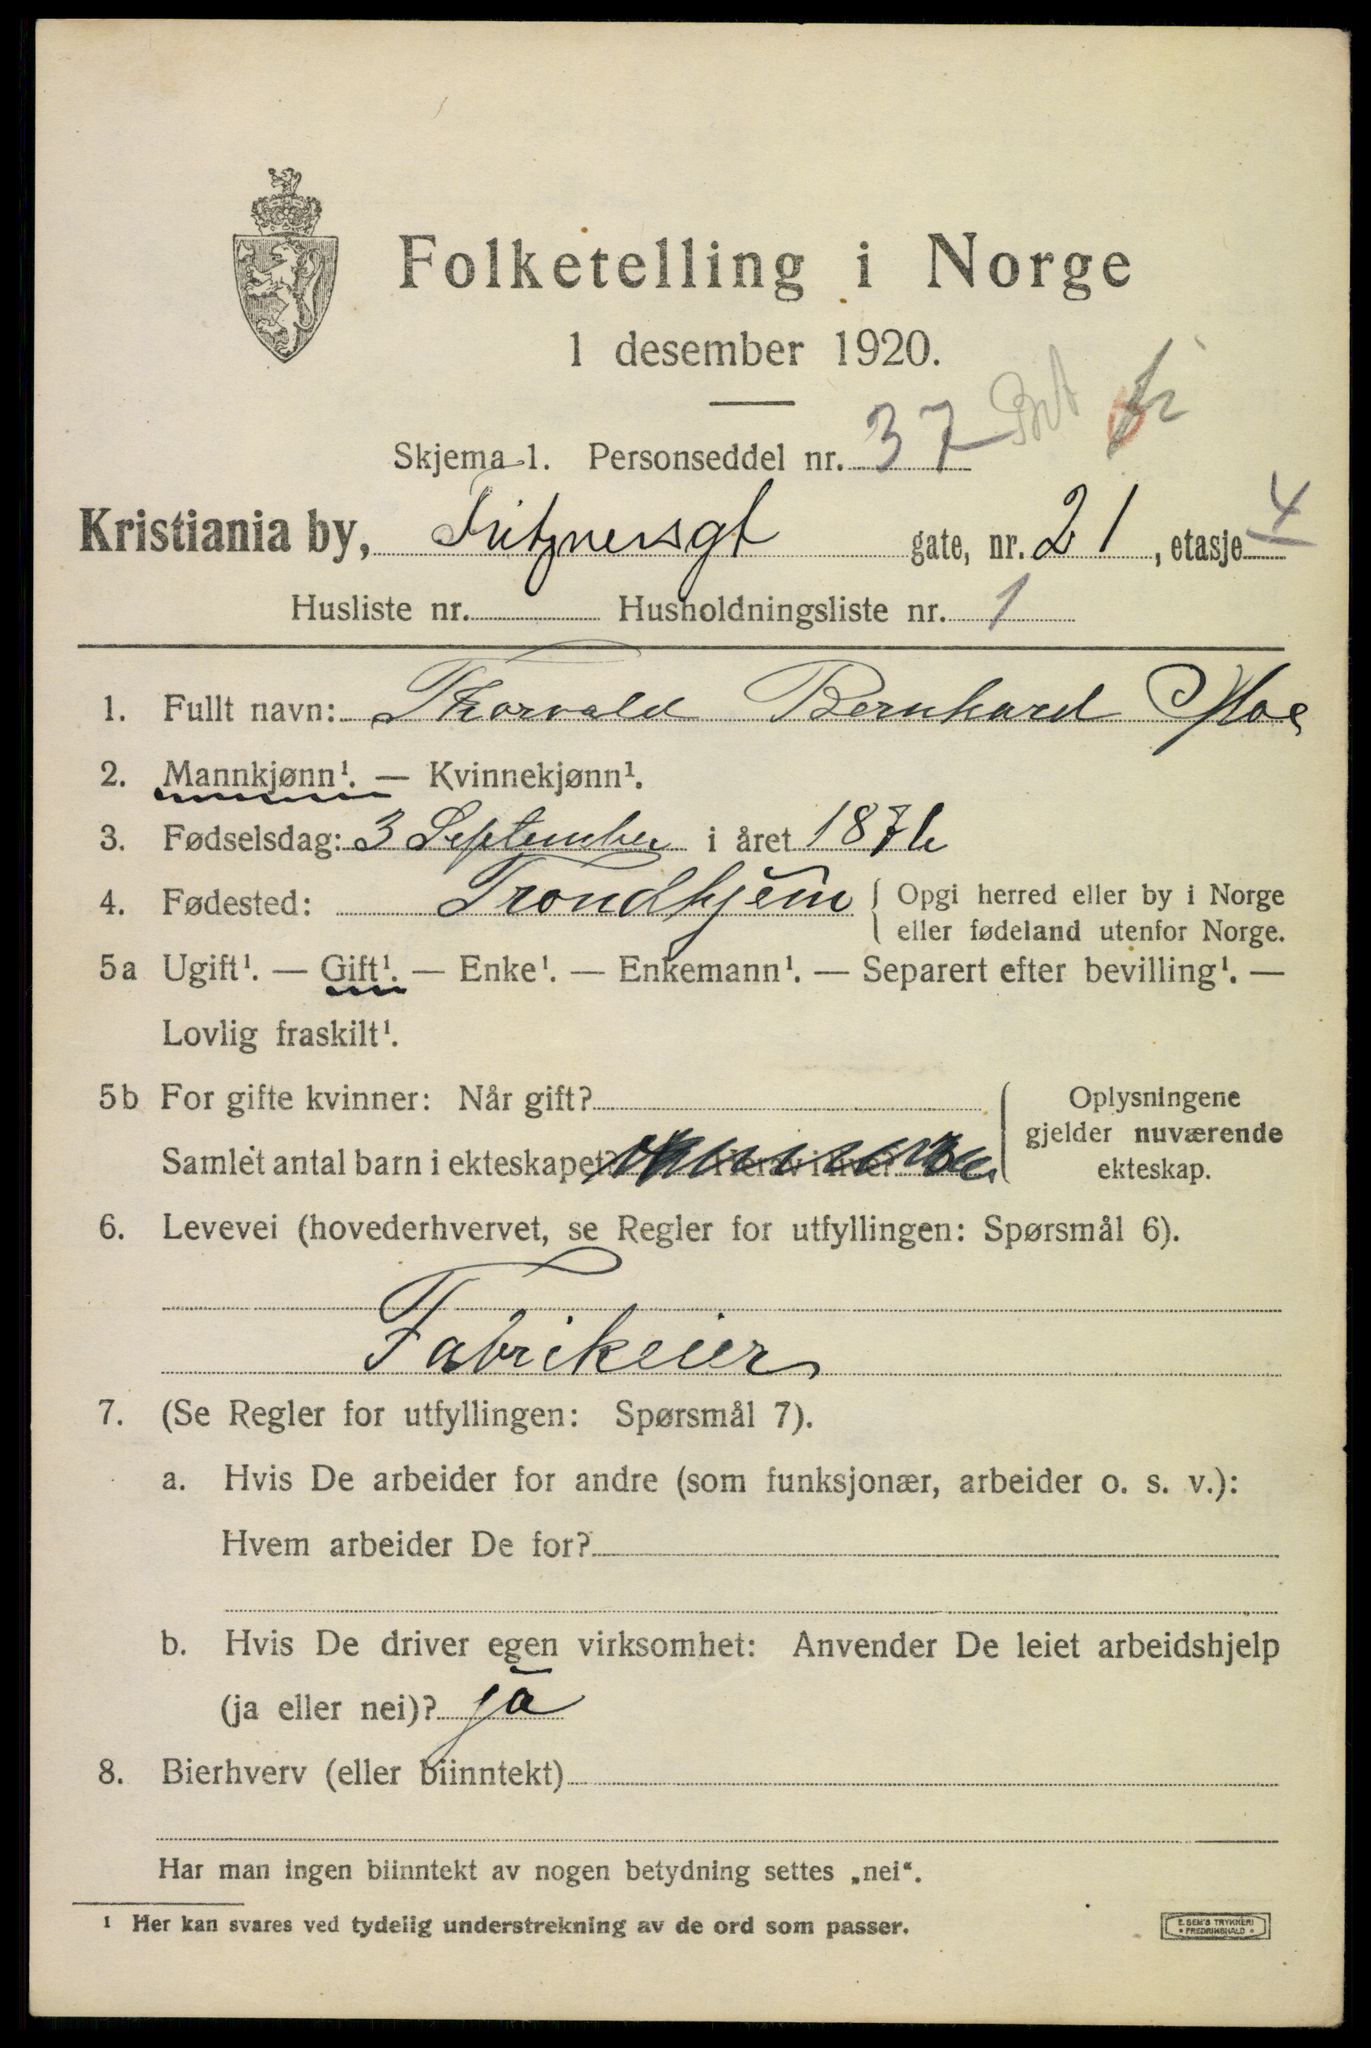 Folketelling i Norge
1 desember 1920.
Skjema 1. Personseddel nr. 37
Kristiania by, Fritznersgt gate, nr. 21, etasje 4
Husliste nr. Husholdningsliste nr. 1
1. Fullt navn: Thorvald Bernhard Moe
2. Mannkjønn¹. — Kvinnekjønn¹.
3. Fødselsdag: 3 September i året
4. Fødested: Trondhjem { Opgi herred eller by i Norge
eller fødeland utenfor Norge.
5a Ugift¹. — Gift¹. — Enke¹. — Enkemann¹. — Separert efter bevilling¹. —
Lovlig fraskilt¹.
5b For gifte kvinner: Når gift? Oplysningene
gjelder nuværende
Samlet antal barn i ekteskapet?
ekteskap.
6. Levevei (hovederhvervet, se Regler for utfyllingen: Spørsmål 6).
Fabrikeier
7. (Se Regler for utfyllingen: Spørsmål 7).
a. Hvis De arbeider for andre (som funksjonær, arbeider o. s. v.):
Hvem arbeider De for?
b. Hvis De driver egen virksomhet: Anvender De leiet arbeidshjelp
(ja eller nei)? ja
8. Bierhverv (eller biinntekt)
Har man ingen biinntekt av nogen betydning settes „nei“.
¹ Her kan svares ved tydelig understrekning av de ord som passer.
E. SEM'S TRYKKERI
FREDRIKSHALD